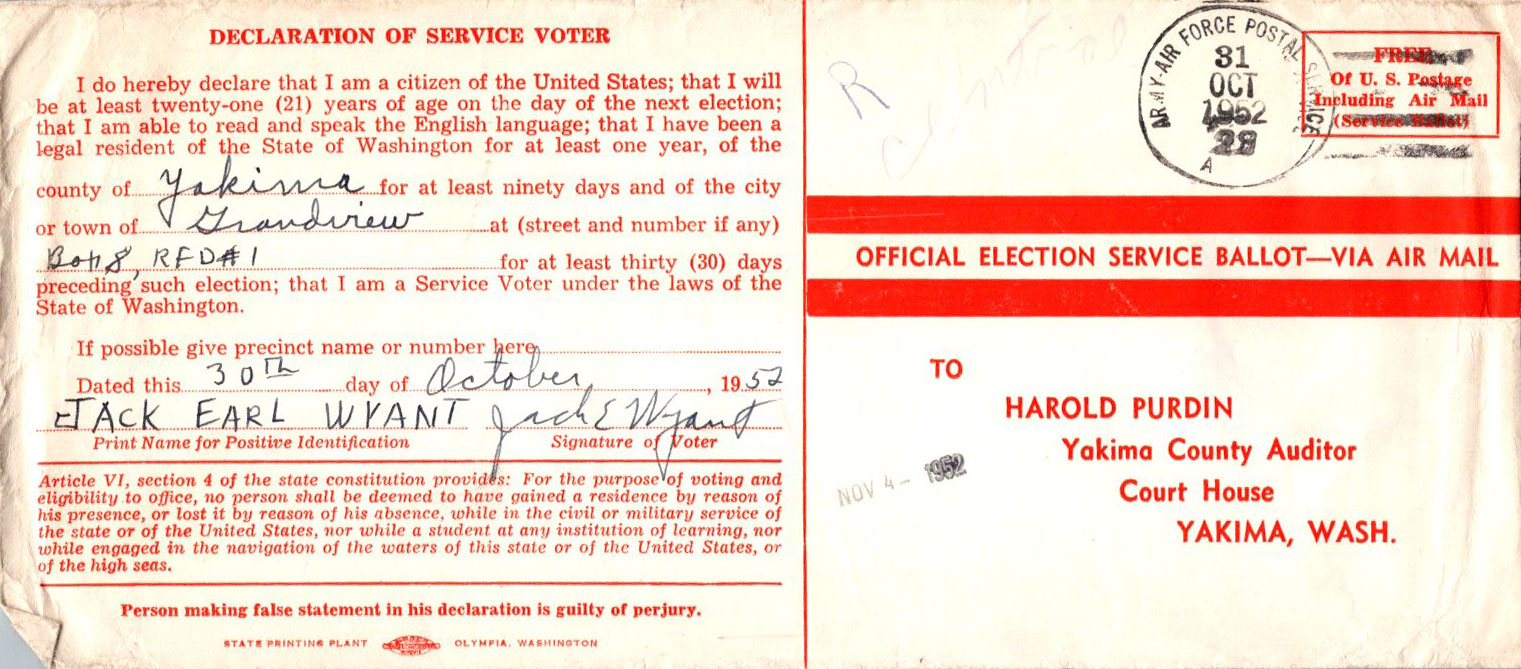 DECLARATION OF SERVICE VOTER
I do hereby declare that I am a citizen of the United States; that I will
be at least twenty-one (21) years of age on the day of the next election;
that I am able to read and speak the English language; that I have been a
legal resident of the State of Washington for at least one year, of the
county of Yakima for at least ninety days and of the city
or town of Grandview at (street and number if any)
Box 8, RFD#1 for at least thirty (30) days
preceding such election; that I am a Service Voter under the laws of the
State of Washington.
If possible give precinct name or number here
Dated this 30th day of October, 1952
JACK EARL WYANT Jack E Wyant
Print Name for Positive Identification Signature of Voter
Article VI, section 4 of the state constitution provides: For the purpose of voting and
eligibility to office, no person shall be deemed to have gained a residence by reason of
his presence, or lost it by reason of his absence, while in the civil or military service of
the state or of the United States, nor while a student at any institution of learning, nor
while engaged in the navigation of the waters of this state or of the United States, or
of the high seas.
Person making false statement in his declaration is guilty of perjury.
STATE PRINTING PLANT OLYMPIA, WASHINGTON
R
ARMY-AIR FORCE POSTAL SERVICE
31
OCT
1952
A
FREE
Of U. S. Postage
Including Air Mail
(Service Ballot)
OFFICIAL ELECTION SERVICE BALLOT—VIA AIR MAIL
TO
HAROLD PURDIN
Yakima County Auditor
Court House
YAKIMA, WASH.
NOV 4 - 1952